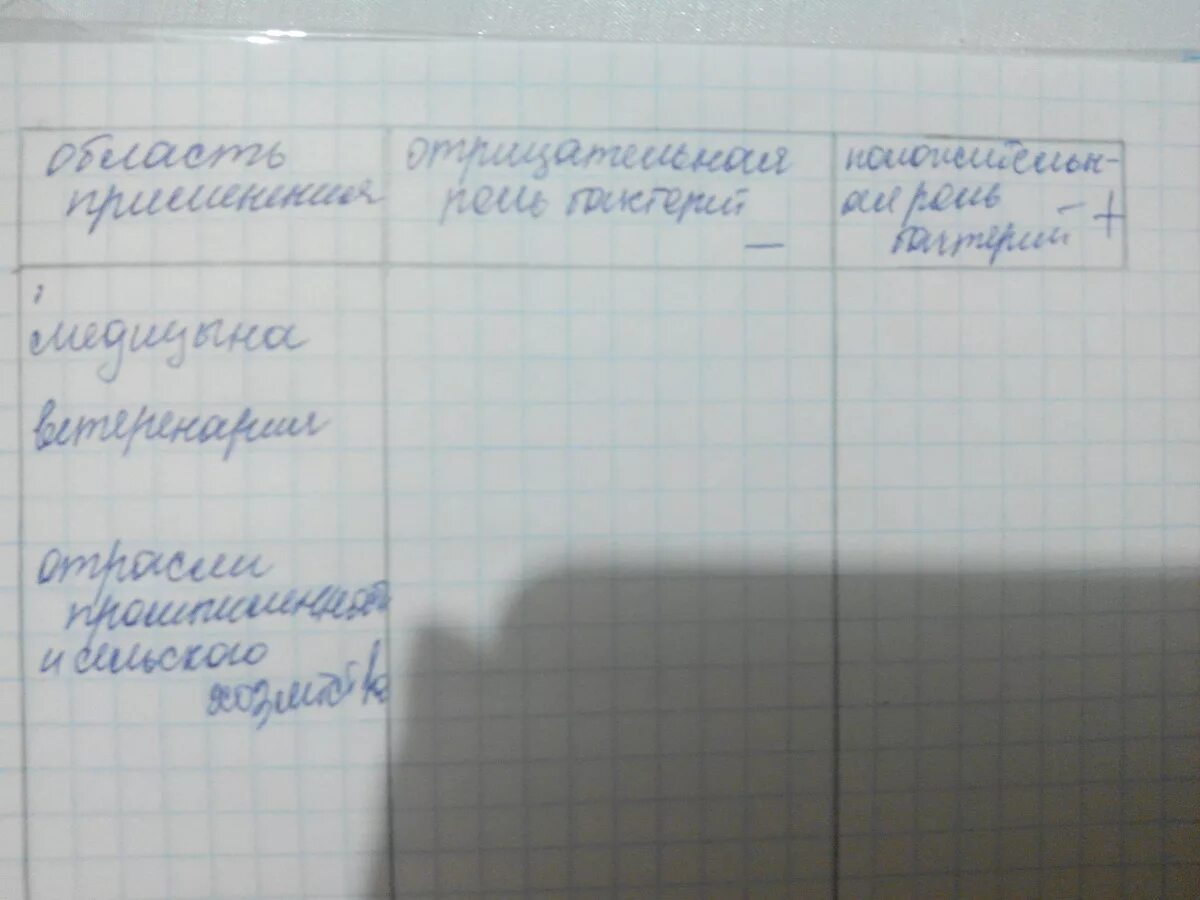 область
применения
отрицательная
роль бактерий
—
положительн-
ая роль
бактерий – +
1
медицына
ветеренария
отрасли
промышленность
и сельского
хозяйства